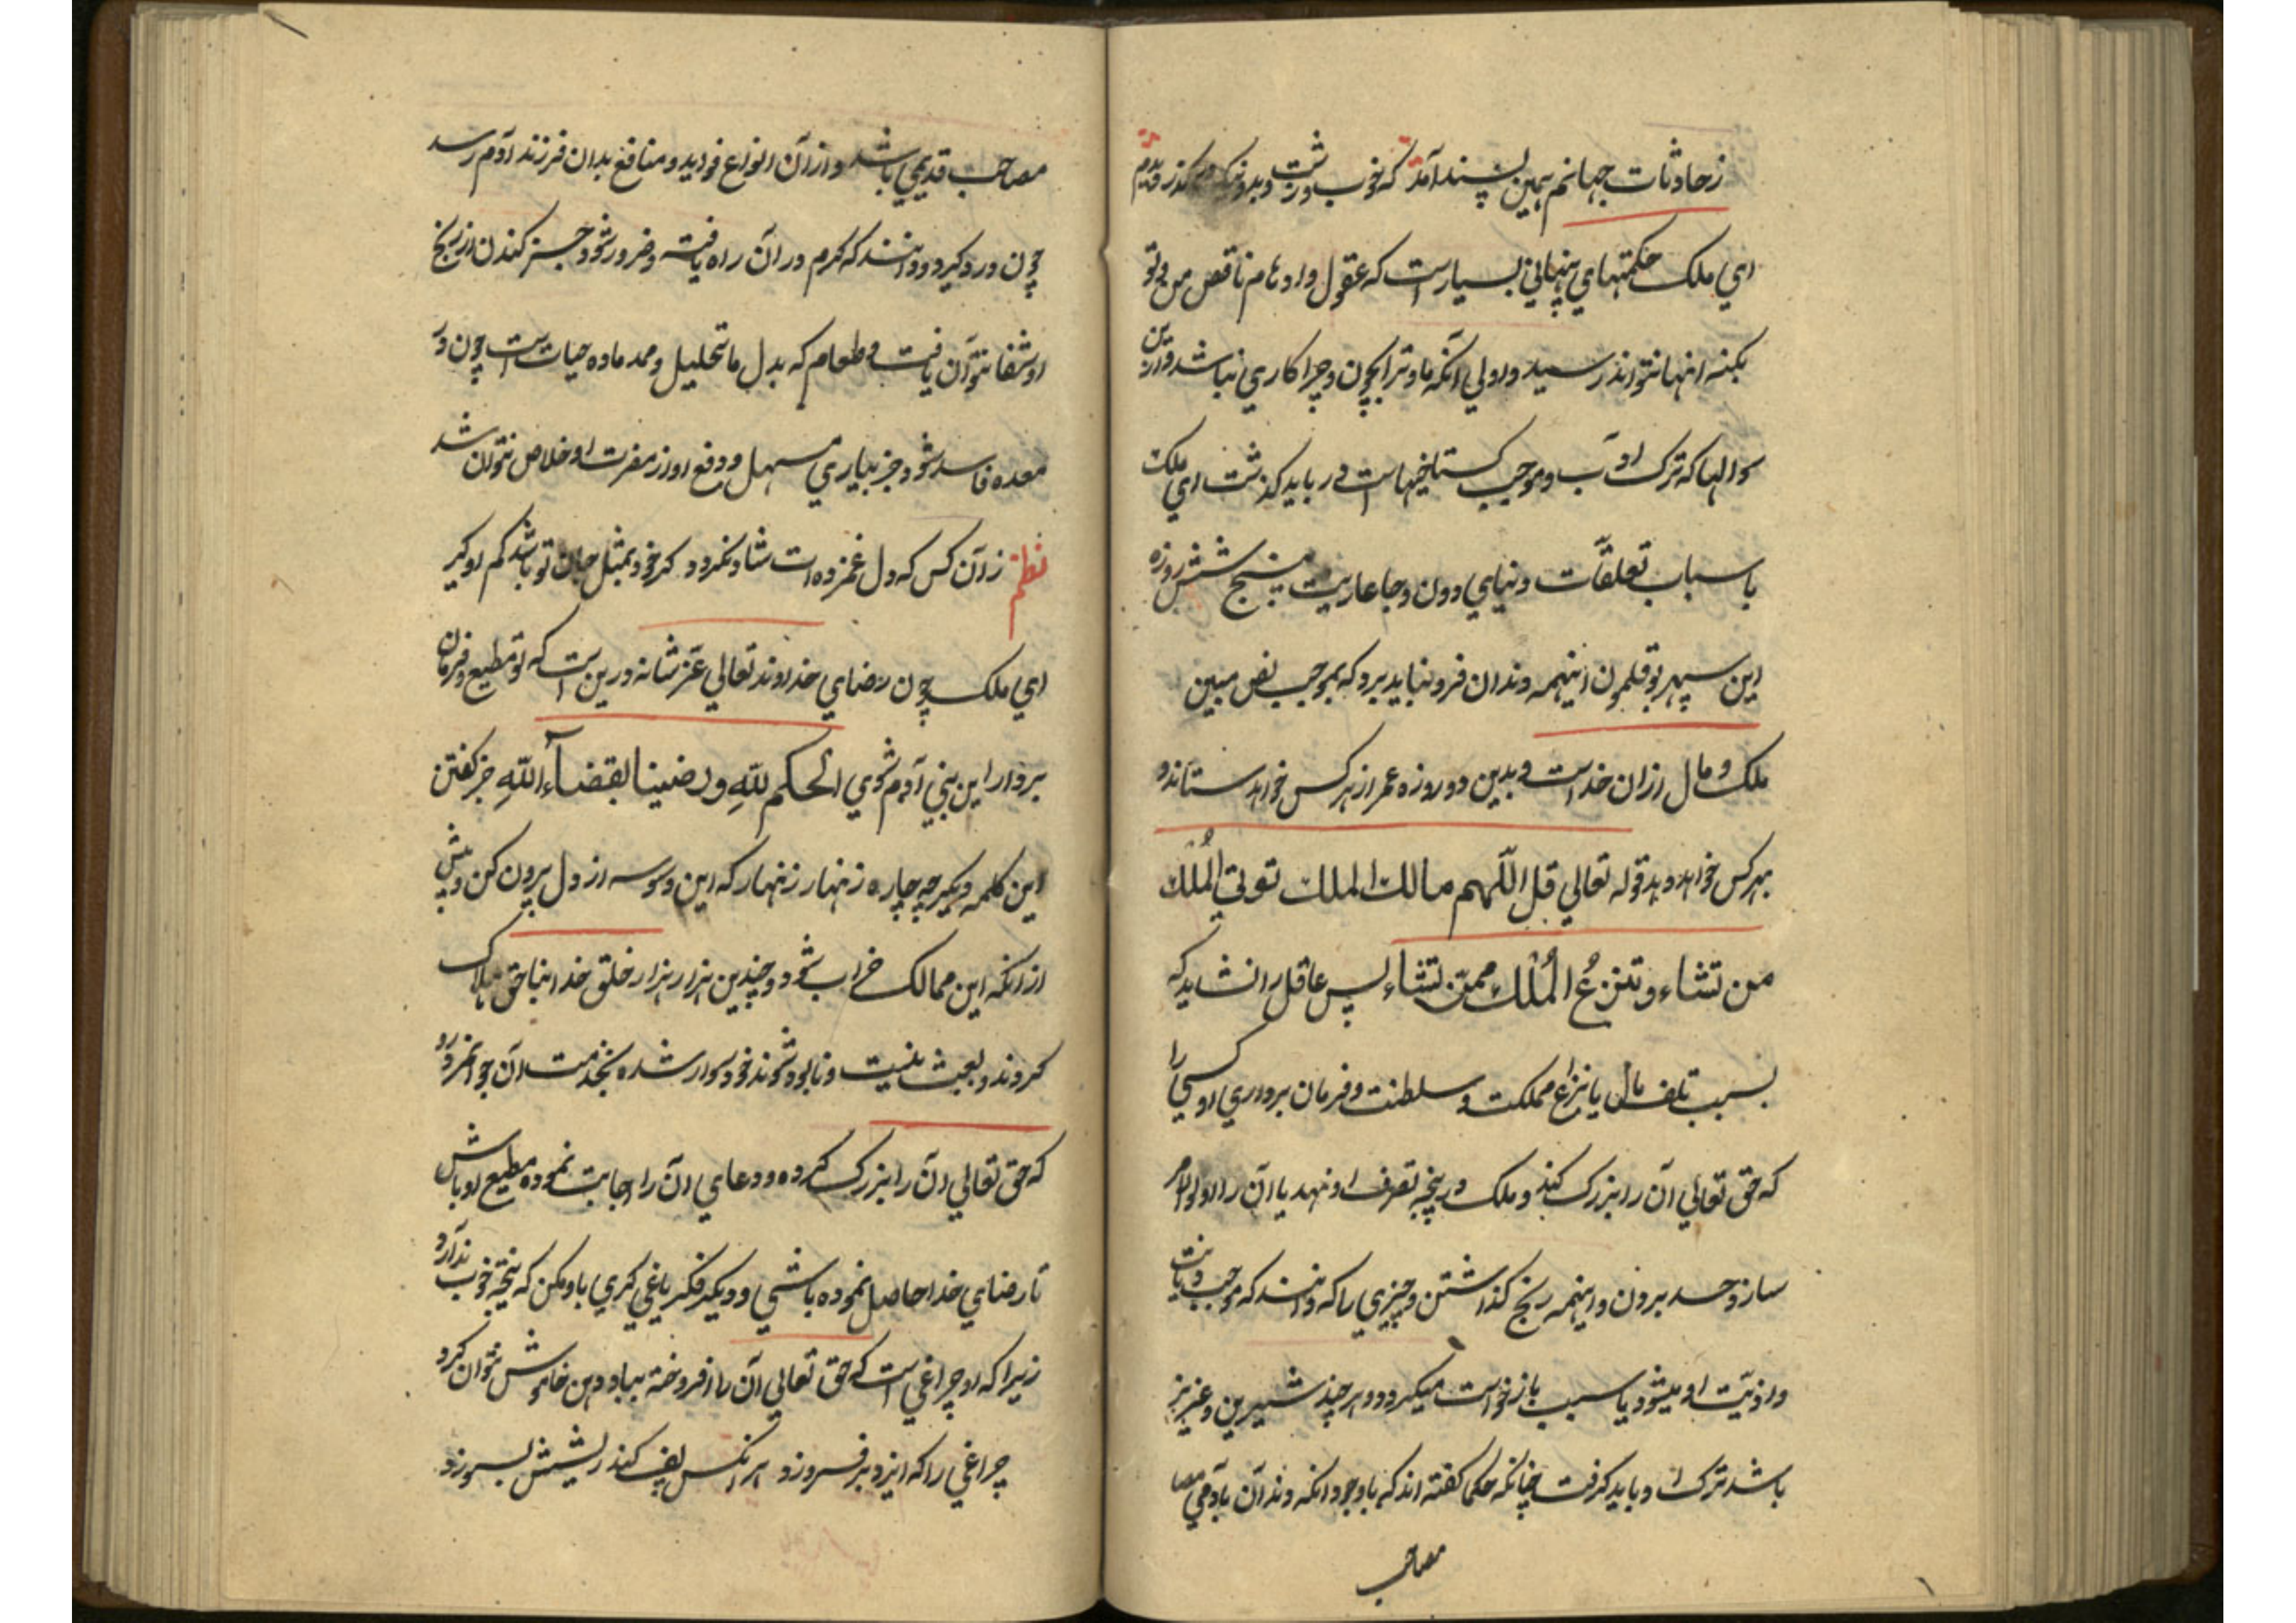 ز حادثات جهانم همین پسند آمد که خوب و زشت و بد و نیک در گذر دیدم
ای ملک حکمتهای پنهانی بسیارست که عقول و اوهام ناقص من و تو
بکنه انها نتواند رسید و اولی آنکه ما و ترا بچون و چرا کاری نباشد و ازین
سوالها که ترک ادب و موجب گستاخیهاست در باید گذشت ای ملک
باسباب تعلقات دنیای دون و جا عاریت پنج شش روزه
این سپهر بوقلمون اینهمه دندان فرو نباید برد که بموجب نص مبین
ملک و مال ازان خداست و بدین دو روزه عمر از هر کس خواهد ستاند و
بهر کس خواهد دهد قوله تعالی قل اللّهم مالك الملك تؤتی المُلْك
من تشاء و تنزعُ المُلْك ممّن تشاء پس عاقل را نشاید که
بسبب تلف مال یا نزاع مملکت و سلطنت و فرمان برداری او کسی را
که حق تعالی آن را بزرگ کند و ملک در پنجه تصرف او نهد یا آن را اولو الامر
سازد حسد بردن و اینهمه رنج گذاشتن و چیزی را که دانند که موجب دیانت
و اذیّت او میشود یا سبب بازخواست میگردد و هر چند شیرین و عزیز
باشد ترک او باید گرفت چنانکه حکما گفته اند که باوجود انکه دندان با آدمی مصا
مصاحب
مصاحب قدیمی باشد و از آن انواع فواید و منافع بدان فرزند آدم رسد
چون درد گیرد و دانند که کرم در آن راه یافت و ضرور شود جز کندن از رنج
او شفا نتوان یافت و طعام که بدل ما تحلیل و ممد ماده حیات است چون در
معده فاسد شود جز بیاری مسهل و دفع او از مضرت او خلاص نتوان شد
نظم ز آن کس که دل غمزده است شاد نگردد گر خود بمثل جان تو باشد کم او گیر
ای ملک چون رضای خداوند تعالی عزّ شانه درین است که تو مطیع و فرمان
بردار این بنی آدم شوی الحکم للّهِ و رضینا بقضآءِ اللّهِ جز گفتن
این کلمه دیگر چه چاره زنهار زنهار که این وسوسه از دل بیرون کن و پیش
از انکه این ممالک خراب شود و چندین هزار هزار خلق خدا بناحق هلاک
گردند و بعبث نیست و نابود شوند خود سوار شده بخدمت آن جوانمرد رو
که حق تعالی آن را بزرگ کرده و دعای آن را اجابت نموده مطیع او باش
تا رضای خدا حاصل نموده باشی و دیگر فکر یاغی گری با او مکن که نتیجه خوب ندارد
زیرا که او چراغی است که حق تعالی آن را افروخته بباد دهن خاموش نتوان کرد
چراغی را که ایزد بر فروزد هر آنکس پف کند ریشش بسوزد